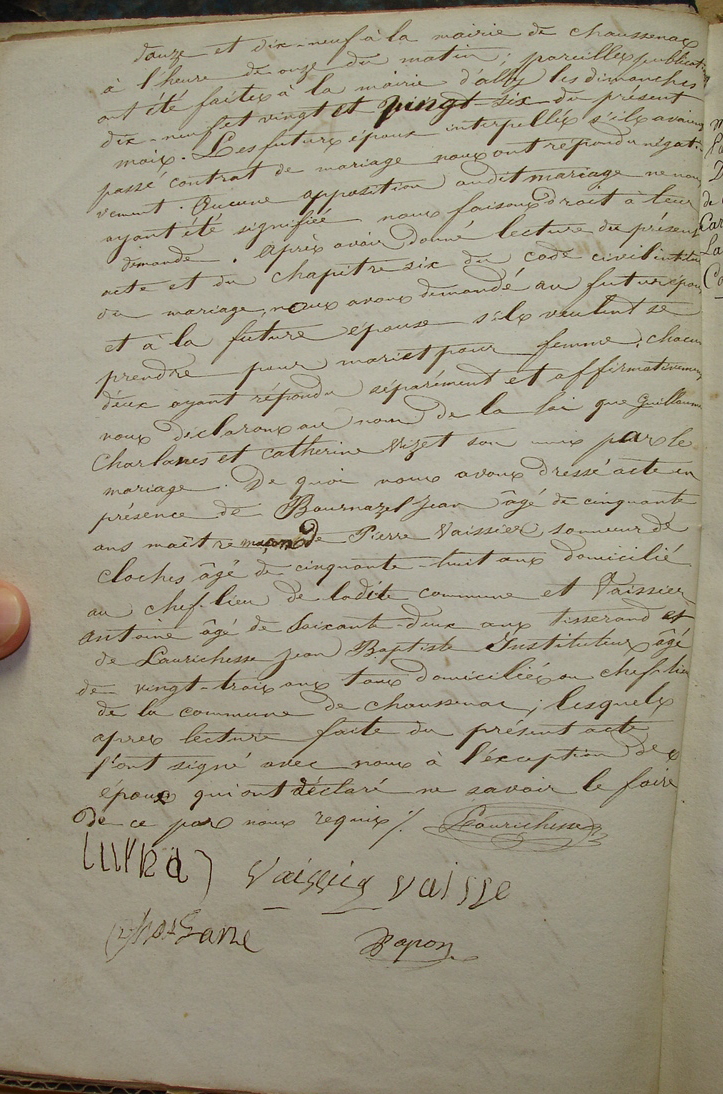 douze et dix-neuf à la mairie de chaussenac
à l'heure de onze du matin ; pareilles publications
ont été faites à la mairie d'ally les dimanches
dix-neuf et vingt et vingt-six du présent
mois. Les futurs époux interpellés s'ils avaient
passé contrat de mariage nous ont répondu négati-
vement. Aucune opposition audit mariage ne nous
ayant été signifiée nous faisons droit à leur
demande. Après avoir donné lecture du présent
acte et du chapitre six du code civil intitulé
du mariage, nous avons demandé au futur époux
et à la future épouse s'ils veulent se
prendre pour mari et pour femme ; chacun
deux ayant répondu séparément et affirmativement
nous déclarons au nom de la loi que Guillaume
Charlanes et Catherine Vizet sont unis par le
mariage. De quoi nous avons dressé acte en
présence de Bournazel Jean âgé de cinquante
ans maître maçon de Pierre Vaissier, sonneur de
cloches âgé de cinquante-huit ans domicilié
au chef-lieu de ladite commune et Vaissier
Antoine âgé de soixante-deux ans tisserand et
de Laurichesse Jean Baptiste Instituteur âgé
de vingt-trois ans tous domiciliés au chef-lieu
de la commune de chaussenac ; lesquels
après lecture faite du présent acte
l'ont signé avec nous à l'éxception des
époux qui ont déclaré ne savoir le faire
de ce par nous requis %. Laurichesse
Vaissie vaisse
Papon